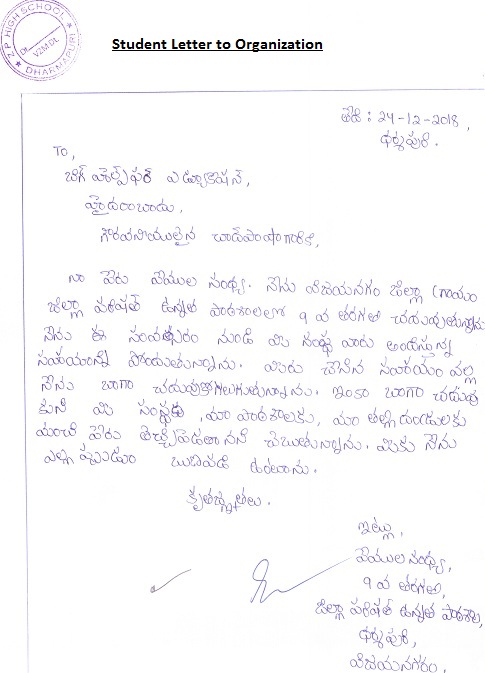 Z.P HIGH SCHOOL
VZM Dt.
DHARMAPURI
Student Letter to Organization
తేది : 24-12-2018,
ధర్మపురి.
To,
బిగ్ హెల్ప్ ఫర్ ఎడ్యుకేషన్,
హైదరాబాదు,
గౌరవనీయులైన చాంద్‌పాషాగారికి,
నా పేరు వేముల సంధ్య. నేను విజయనగరం జిల్లా గ్రామం
జిల్లా పరిషత్ ఉన్నత పాఠశాలలో 9 వ తరగతి చదువుతున్నాను
నేను ఈ సంవత్సరం నుండి మీ సంస్థ వారు అందిస్తున్న
సహాయాన్ని పొందుతున్నాను. మీరు చేసిన సహాయం వల్ల
నేను బాగా చదువుకోగలుగుతున్నాను. ఇంకా బాగా చదువు
కుని మీ సంస్థకు, మా పాఠశాలకు, మా తల్లిదండ్రులకు
మంచి పేరు తెచ్చిపెడతానని చెబుతున్నాను. మీకు నేను
ఎల్లప్పుడూ ఋణపడి ఉంటాను.
కృతజ్ఞతలు.
ఇట్లు,
వేముల సంధ్య,
9 వ తరగతి,
జిల్లా పరిషత్ ఉన్నత పాఠశాల,
ధర్మపురి,
విజయనగరం.